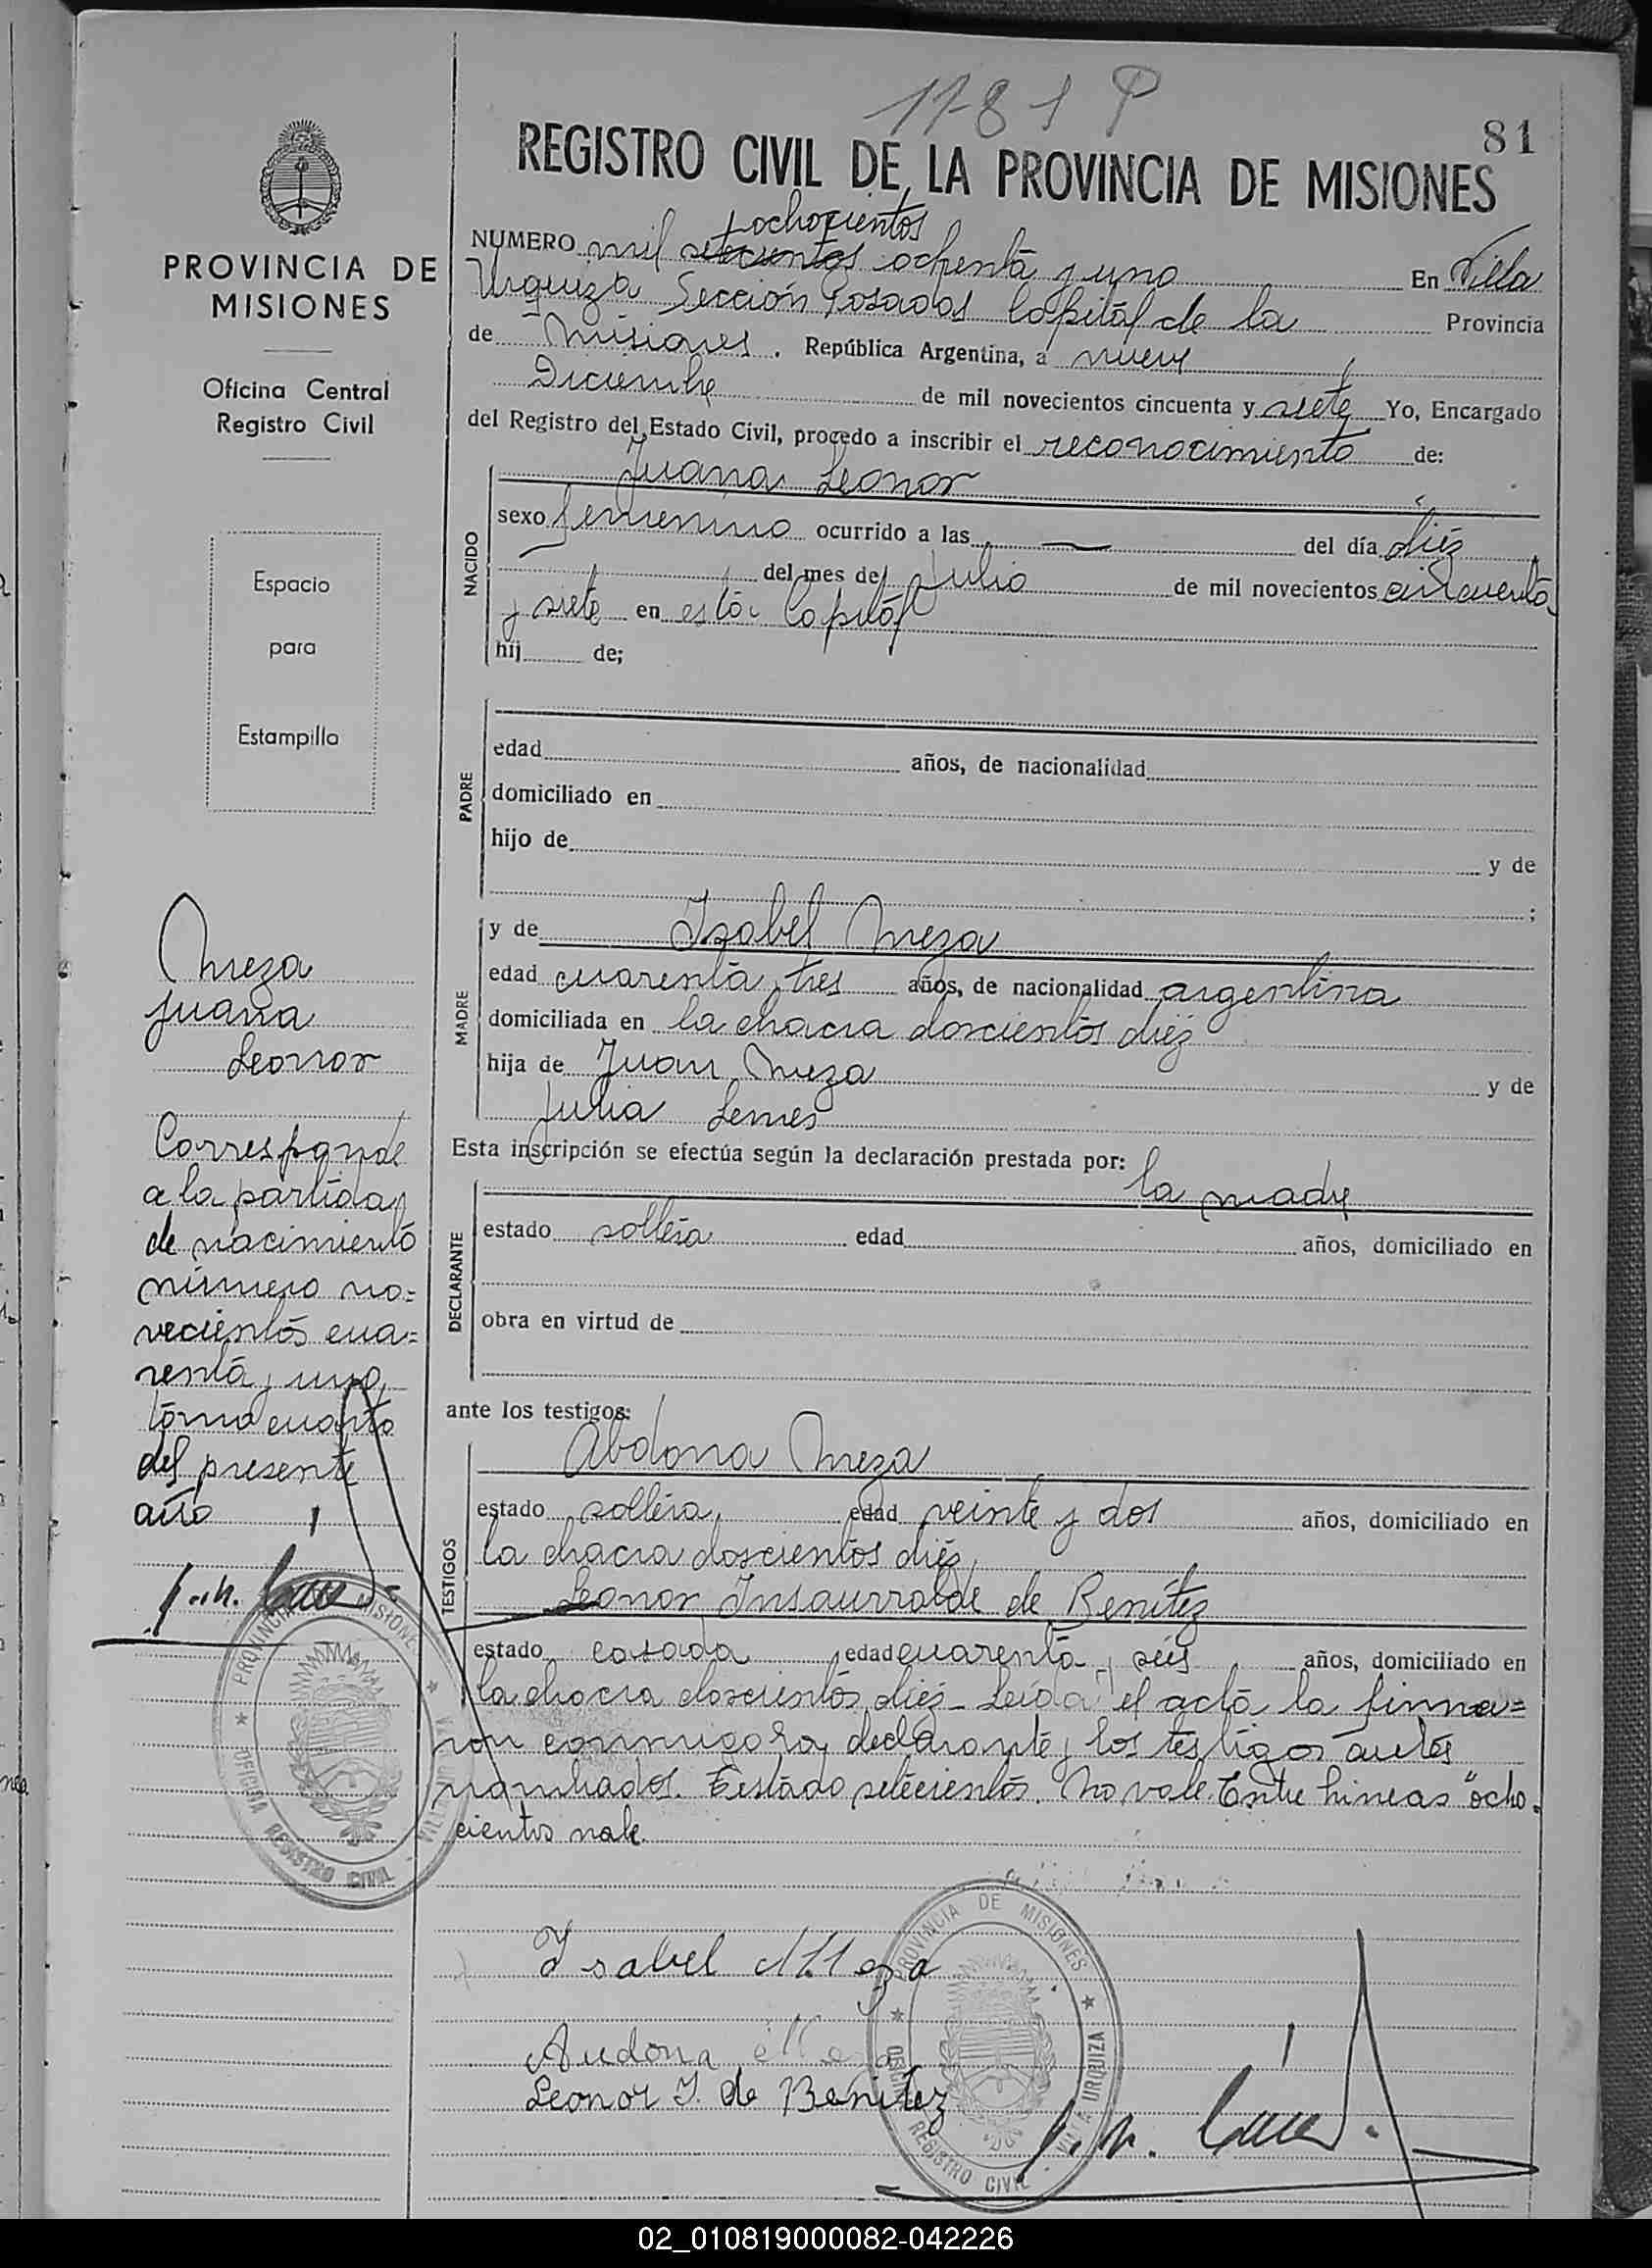 1781 P
81
REGISTRO CIVIL DE LA PROVINCIA DE MISIONES
PROVINCIA DE
MISIONES
Oficina Central
Registro Civil
Espacio
para
Estampilla
ochocientos
NUMERO mil setecientos ochenta y uno En Villa
Urquiza Sección Posadas Capital de la Provincia
de Misiones. República Argentina, a nueve
Diciembre de mil novecientos cincuenta y siete Yo, Encargado
del Registro del Estado Civil, procedo a inscribir el reconocimiento de:
NACIDO
Juana Leonor
sexo femenino ocurrido a las — del día diéz
del mes de Julio de mil novecientos cincuenta
y siete en esta Capital
hij de;
PADRE
edad años, de nacionalidad
domiciliado en
hijo de y de
;
MADRE
y de Isabel Meza
edad cuarenta y tres años, de nacionalidad argentina
domiciliada en la chacra doscientos diéz
hija de Juan Meza y de
Julia Lemes
Esta inscripción se efectúa según la declaración prestada por:
DECLARANTE
la madre
estado soltera edad años, domiciliado en
obra en virtud de
ante los testigos:
TESTIGOS
Abdona Meza
estado soltera edad veinte y dos años, domiciliado en
la chacra doscientos diéz
Leonor Insaurralde de Benítez
estado casada edad cuarenta y seis años, domiciliado en
la chacra doscientos diéz - Leída el acta la firma=
ron conmigo la declarante y los testigos antes
nombrados. Testado setecientos. No vale. Entre lineas "ocho
cientos vale.
Meza
Juana
Leonor
Corresponde
a la partida
de nacimiento
número no=
vecientos cua=
renta y uno,
tomo cuarto
del presente
año
PROVINCIA DE MISIONES
VILLA URQUIZA
OFICINA REGISTRO CIVIL
Isabel Meza
Audona Meza
Leonor I. de Benitez
PROVINCIA DE MISIONES
VILLA URQUIZA
OFICINA REGISTRO CIVIL
02_010819000082-042226